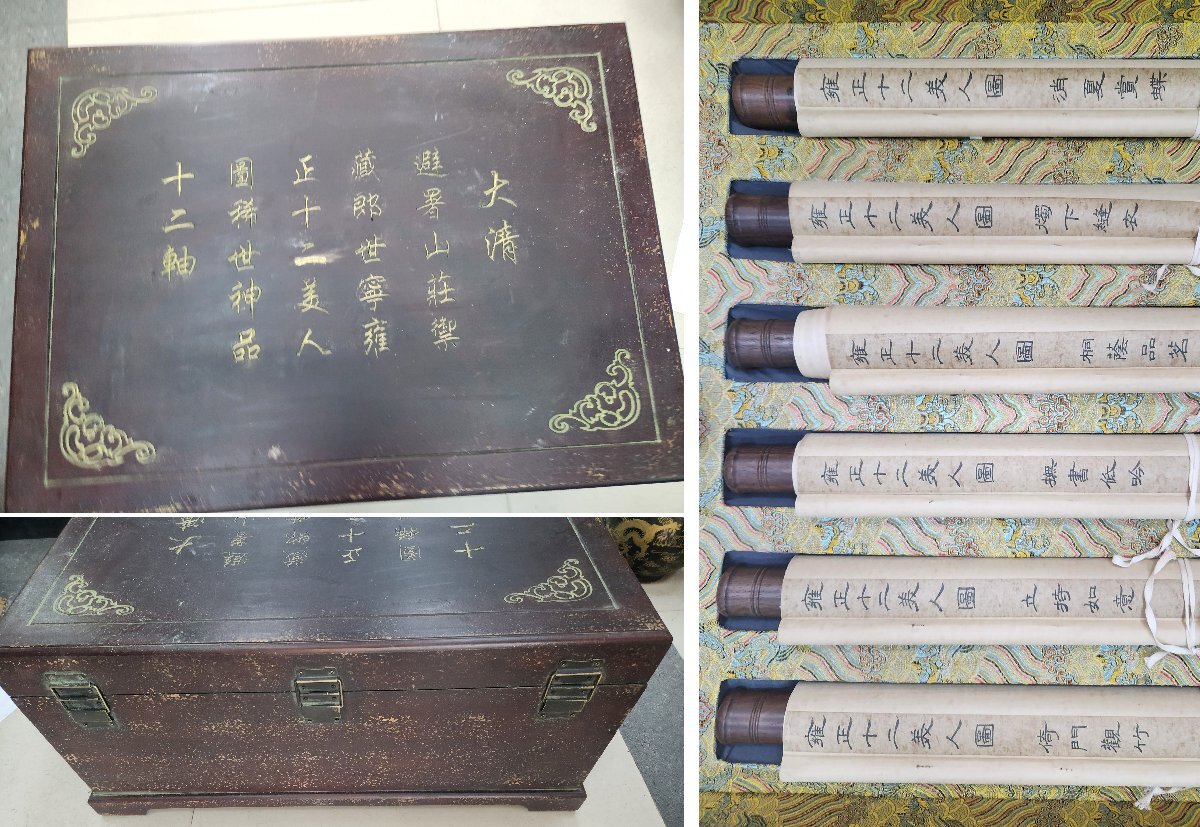 大清
避暑山莊禦
藏郎世寧雍
正十二美人
圖稀世神品
十二軸
雍正十二美人圖 消夏賞蝶
雍正十二美人圖 燭下縫衣
雍正十二美人圖 桐蔭品茗
雍正十二美人圖 撫書低吟
雍正十二美人圖 立持如意
雍正十二美人圖 倚門觀竹